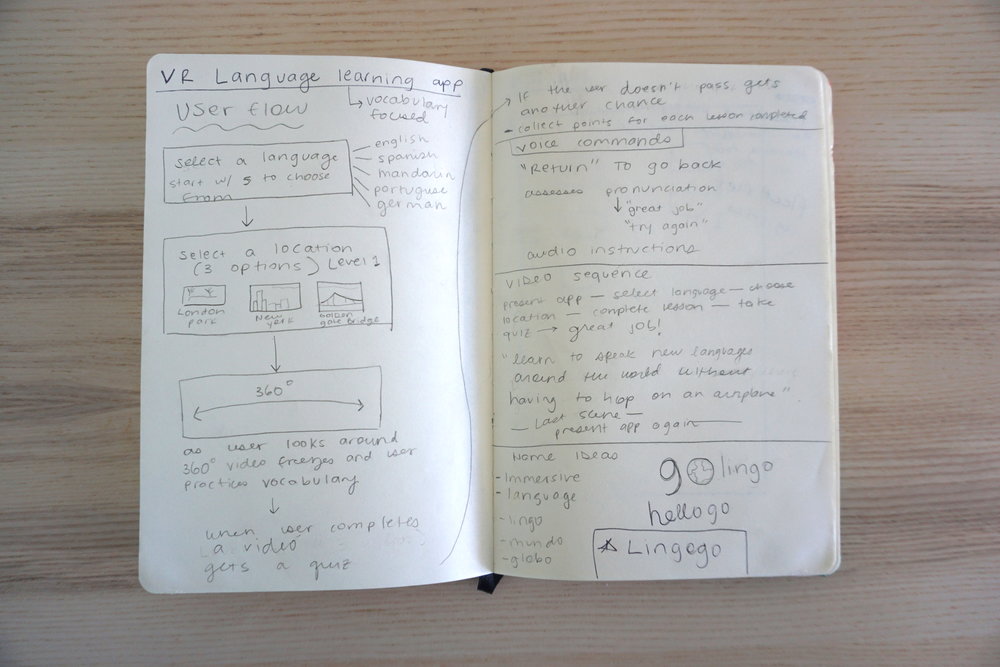 VR Language learning app
vocabulary
focused
User flow
select a language
start w/ 5 to choose
from
english
spanish
mandarin
portuguse
german
select a location
(3 options) Level 1
London
park
New
york
Golden
gate Bridge
360°
as user looks around
360° video freezes and user
practices vocabulary
when user completes
a video
gets a quiz
If the user doesn't pass gets
another chance
- collect points for each lesson completed
voice commands
"Return" To go back
assesses pronunciation
"great job"
"try again"
audio instructions
video sequence
present app — select language — choose
location — complete lesson — take
quiz → great job!
"learn to speak new languages
around the world without
having to hop on an airplane"
— Last scene —
present app again
Name Ideas
- Immersive
- language
- lingo
- mundo
- globo
go lingo
hellogo
Lingogo